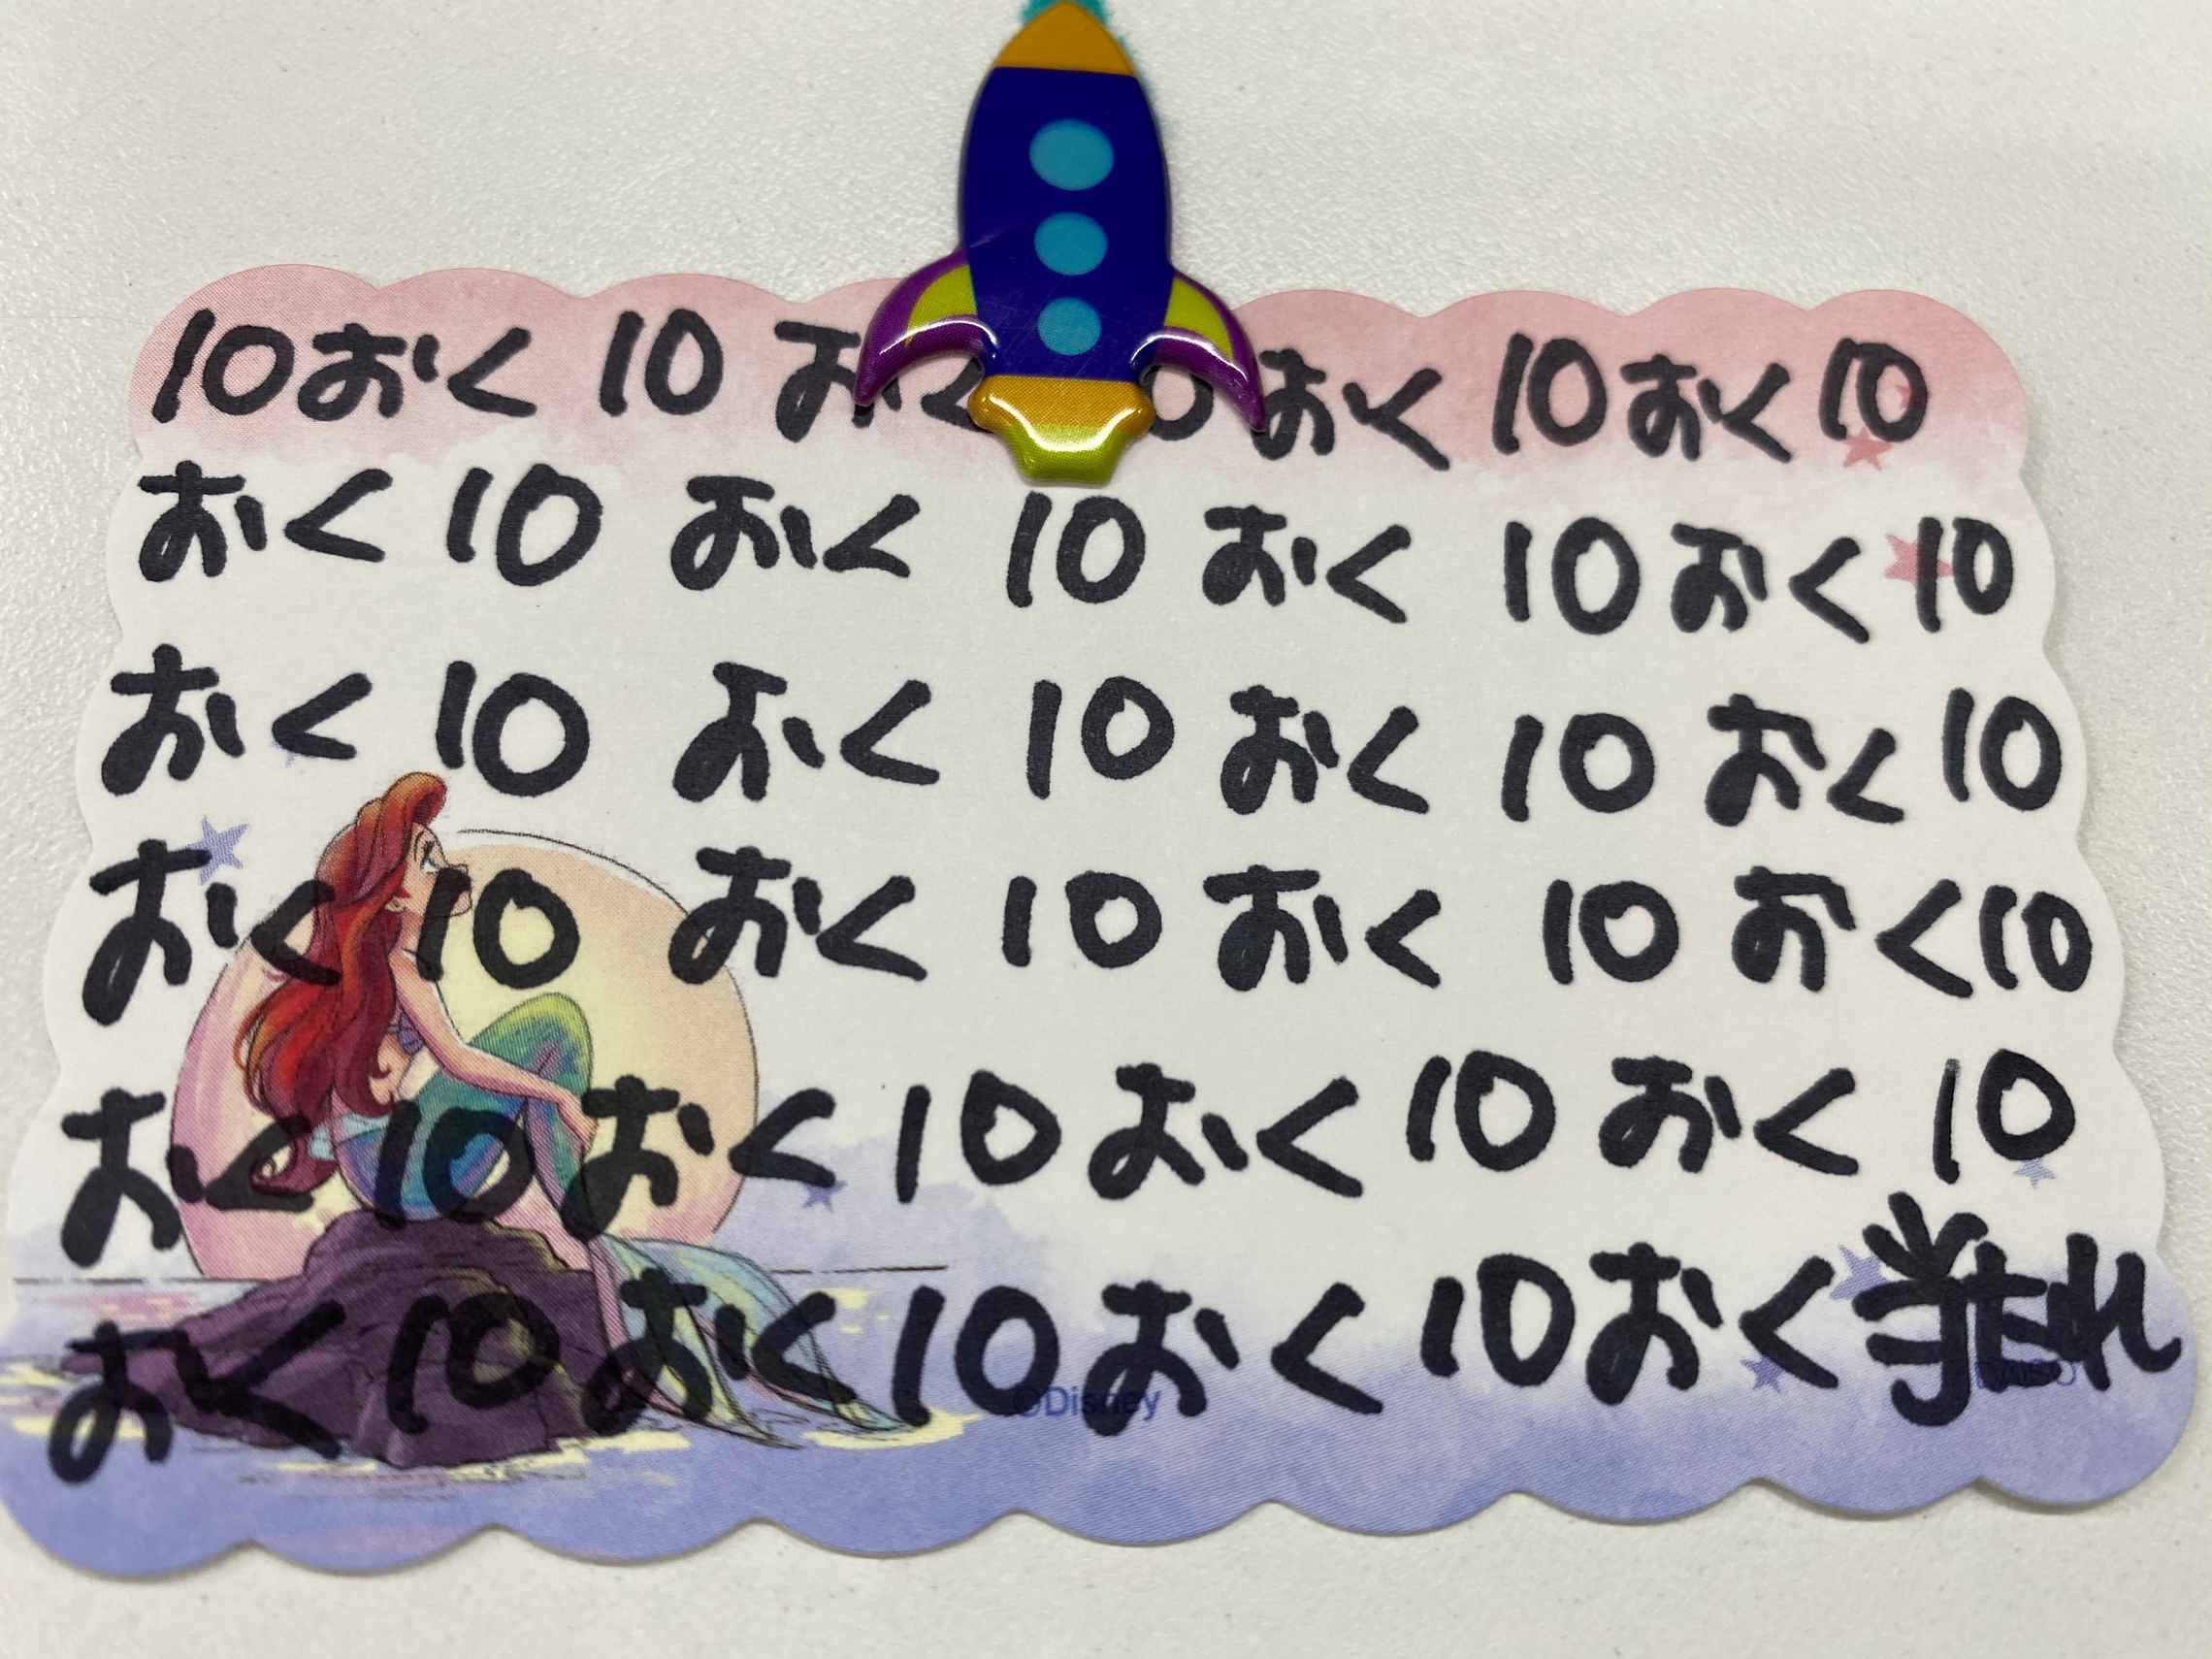 10おく 10 おく 10おく 10おく 10
おく 10 おく 10 おく 10 おく 10
おく 10 おく 10 おく 10 おく 10
おく 10 おく 10 おく 10 おく 10
おく 10 おく 10 おく 10 おく 10
おく 10 おく 10 おく 10 おく 当たれ
©Disney
DAISO